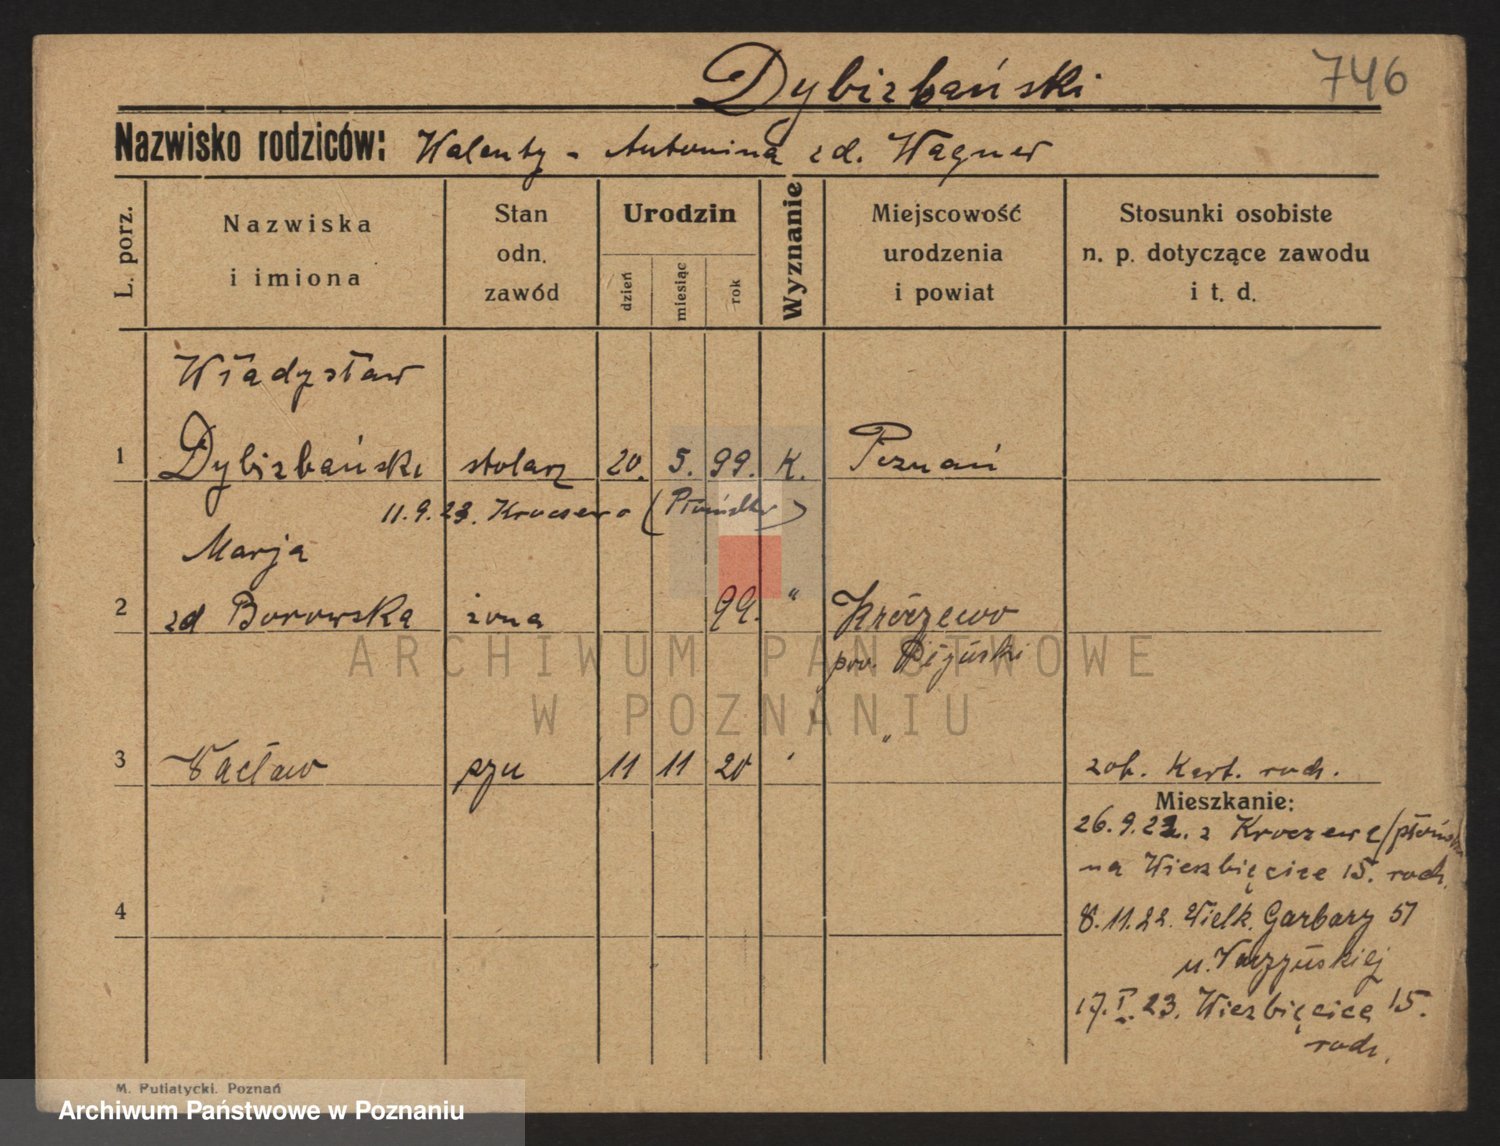 746
Dybizbański
Nazwisko rodziców: Walenty - Antonina zd. Wagner
L. porz. Nazwiska i imiona Stan odn. zawód Urodzin dzień miesiąc rok Wyznanie Miejscowość urodzenia i powiat Stosunki osobiste n. p. dotyczące zawodu i t. d.
Władysław
1 Dybizbański stolarz 20. 5. 99. K. Poznań
11.9.23. Kroczewo (Płońsk)
Marja
2 zd Borowska żona 99. " Króczewo
pow.
3 Wacław przy 11 11 20 " zob. Kart. rodz.
Mieszkanie:
26.9.22. z Kroczewa (płońsk
na Wierzbięcice 15. rodz.
4 8.11.22. Wielk. Garbary 51
u.
17.I.23. Wierzbięcice 15.
rodz.
ARCHIWUM PAŃSTWOWE
W POZNANIU
M. Putiatycki. Poznań
Archiwum Państwowe w Poznaniu